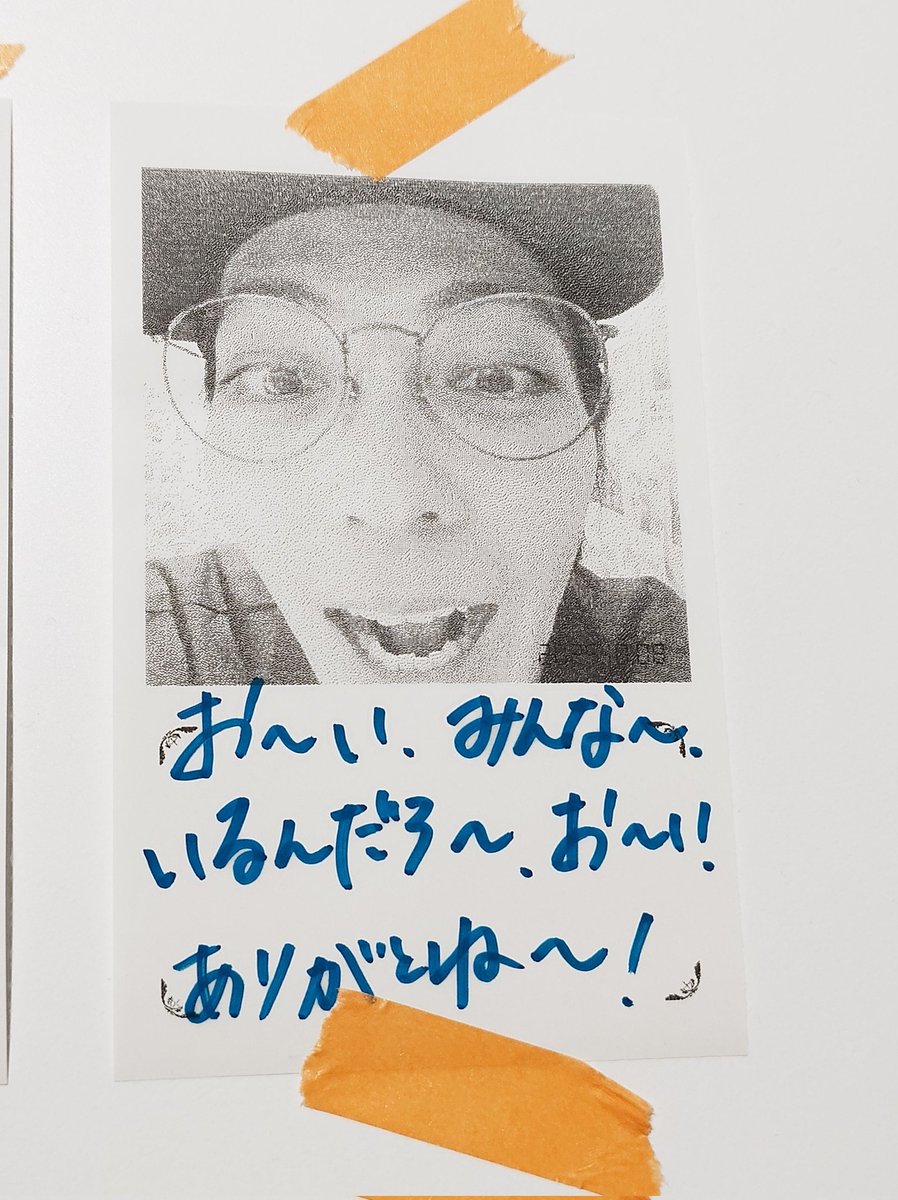 お〜い、みんな〜、
いるんだろ〜、お〜い!
ありがとね〜!